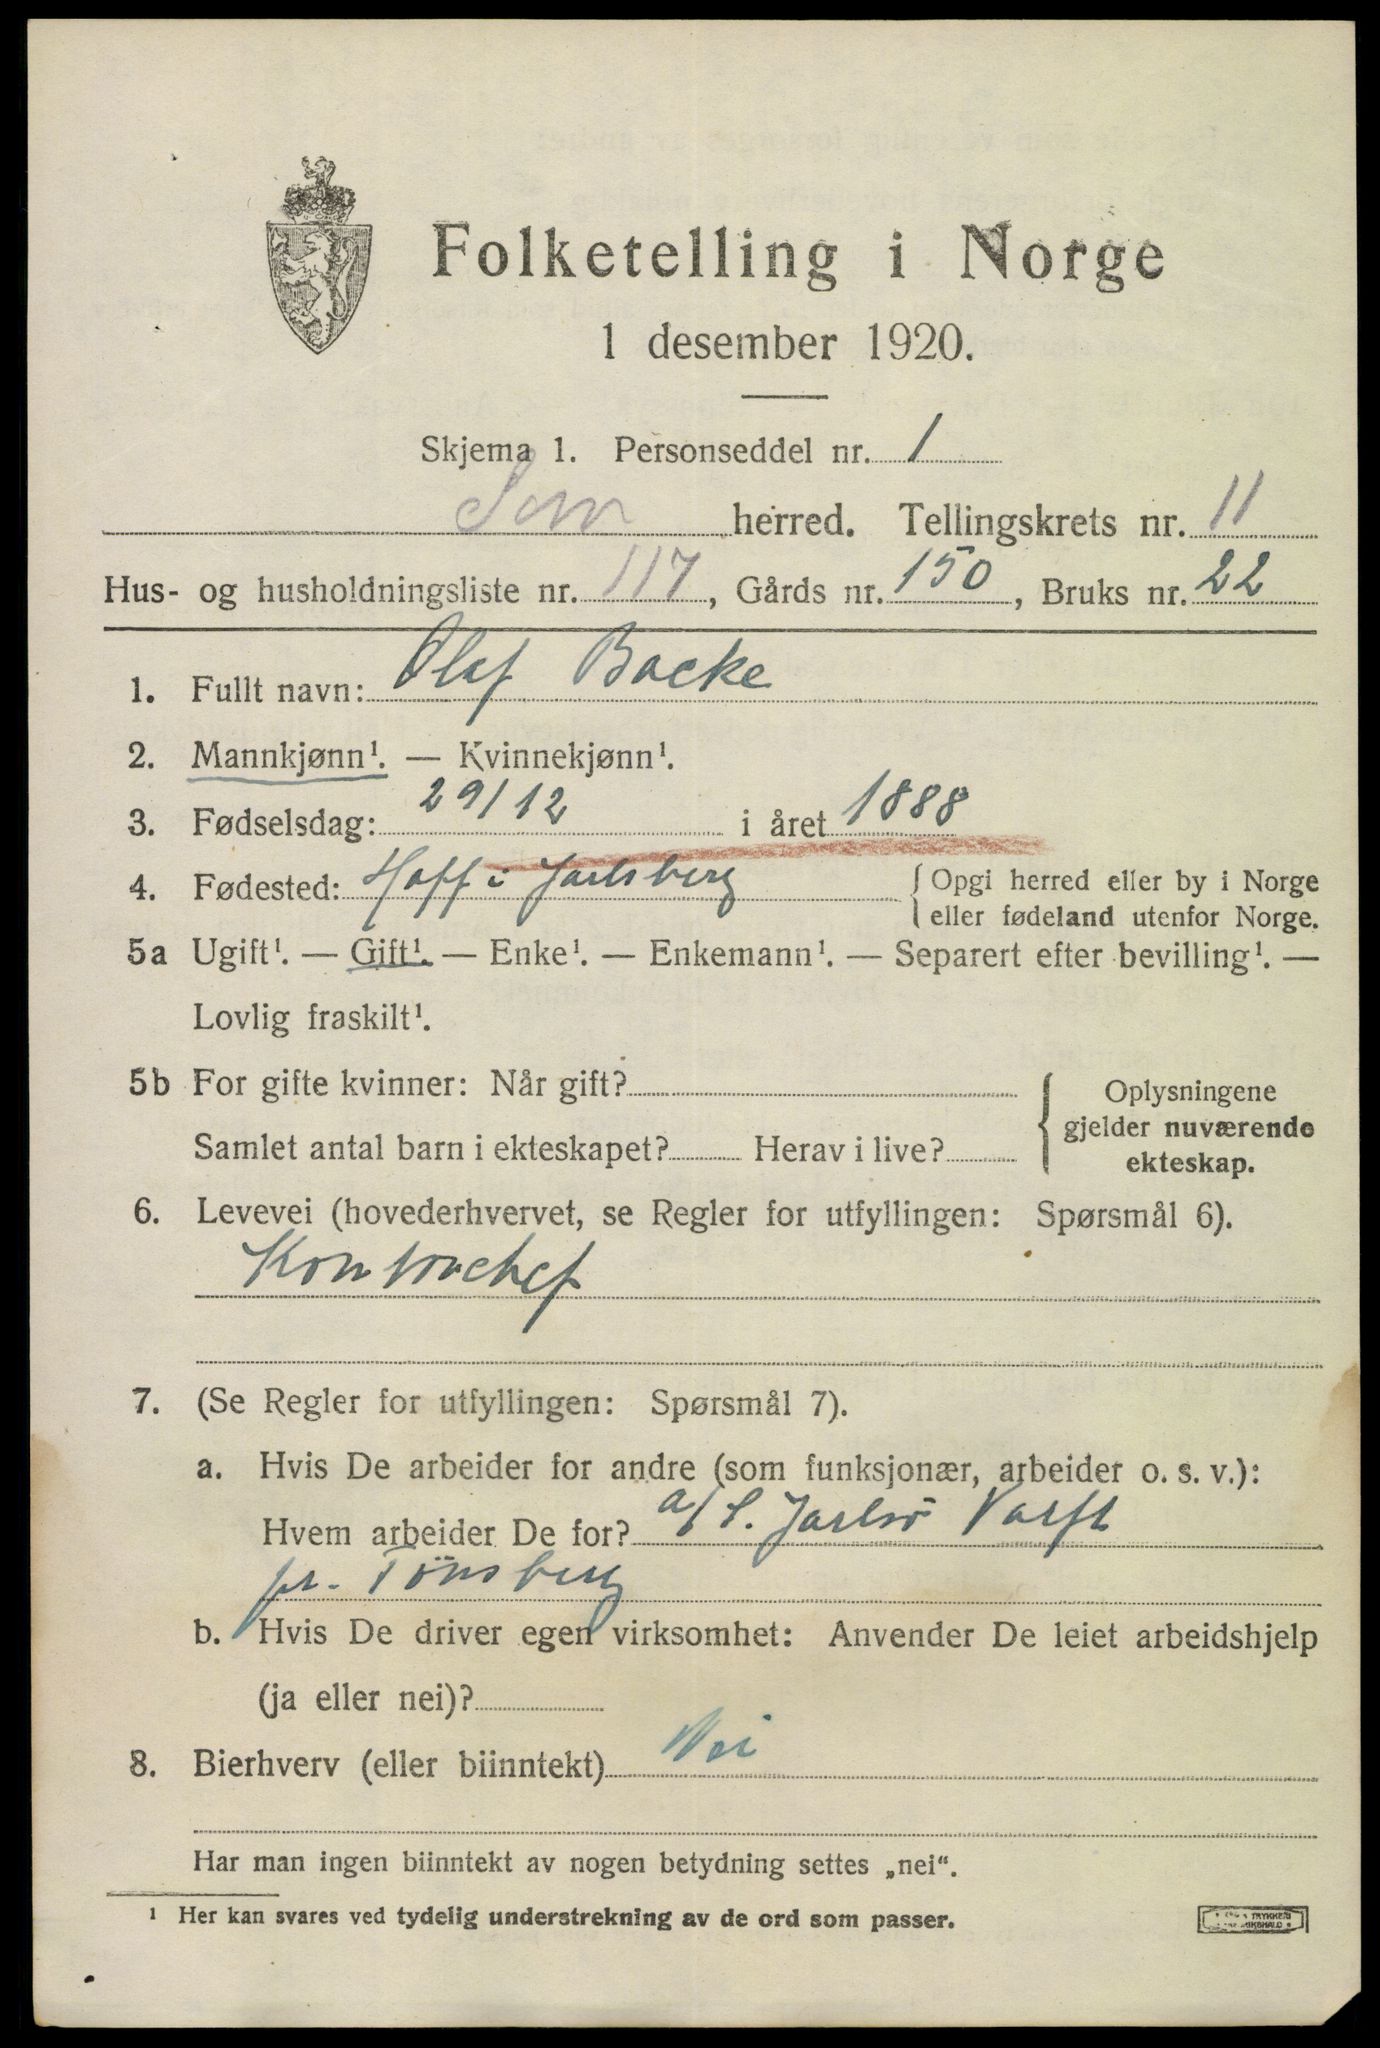 Folketelling i Norge
1 desember 1920.
Skjema 1. Personseddel nr. 1
Sem herred. Tellingskrets nr. 11
Hus- og husholdningsliste nr. 117, Gårds nr. 150, Bruks nr. 22
1. Fullt navn: Olaf Backe
2. Mannkjønn¹. — Kvinnekjønn¹.
3. Fødselsdag: 29/12 i året 1888
4. Fødested: Hoff i Jarlsberg { Opgi herred eller by i Norge
eller fødeland utenfor Norge.
5a Ugift¹. — Gift¹. — Enke¹. — Enkemann¹. — Separert efter bevilling¹. —
Lovlig fraskilt¹.
5b For gifte kvinner: Når gift?
Samlet antal barn i ekteskapet? Herav i live?
{ Oplysningene
gjelder nuværende
ekteskap.
6. Levevei (hovederhvervet, se Regler for utfyllingen: Spørsmål 6).
Kontorchef
7. (Se Regler for utfyllingen: Spørsmål 7).
a. Hvis De arbeider for andre (som funksjonær, arbeider o. s. v.):
Hvem arbeider De for? a/S. Jarlsö Varft
pr. Tönsberg
b. Hvis De driver egen virksomhet: Anvender De leiet arbeidshjelp
(ja eller nei)?
8. Bierhverv (eller biinntekt) Nei
Har man ingen biinntekt av nogen betydning settes „nei“.
¹ Her kan svares ved tydelig understrekning av de ord som passer.